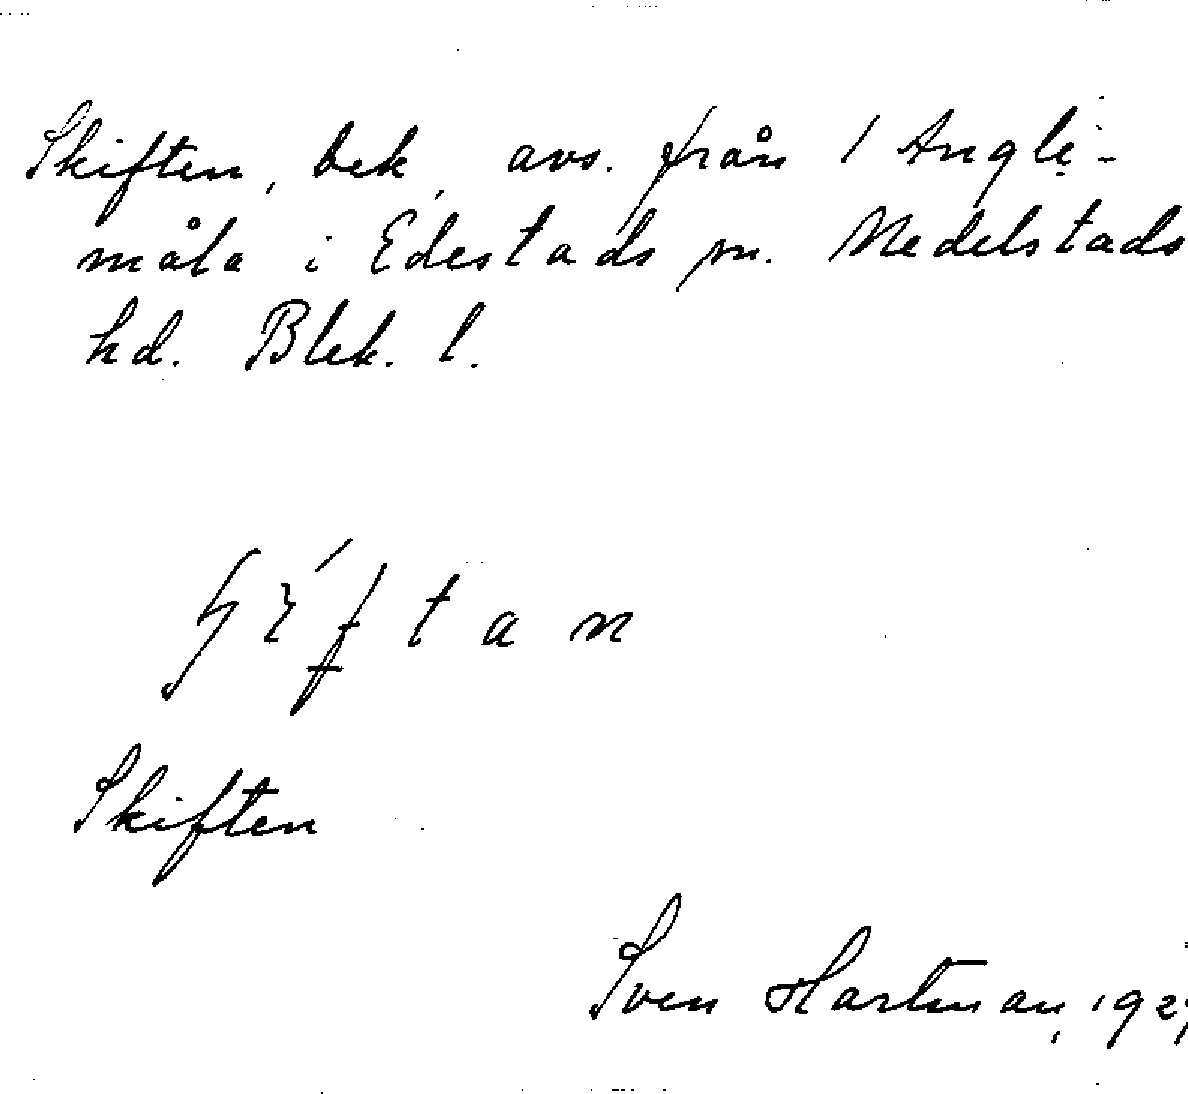 Skiften, bek, avs. från 1 Angle-
måla i Edestads sn. Medelstads
hd. Blek. l.
Skiften
Sven Hartman,